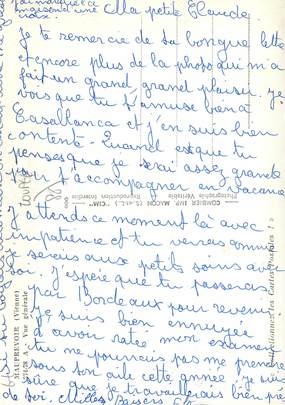 Ma petite Claude
Je te remercie de ta longue lettre
et encore plus de la photo qui m'a
fait un grand, grand plaisir. Je
vois que tu t'amuse bien à
Casablanca et j'en suis bien
contente. Quand est-ce que tu
penses que je serai assez grande
pour t'accompagner en vacance
J'attends ce moment là avec
impatience et tu verras comme
je serais aux petits soins avec
toi. J'espère que tu passeras
par Bordeaux pour revenir
je suis bien ennuyée
d'avoir ratée mon examen
tu ne pourrais pas me prendre
sous son aile cette année. je suis
sûre que je travaillerais bien près
de toi. Milles baisers
COMBIER IMP. MACON (S.-et-L.) "CIM"
Photographie Véritable
Reproduction Interdite
MAUPREVOIR (Vienne)
Vue générale